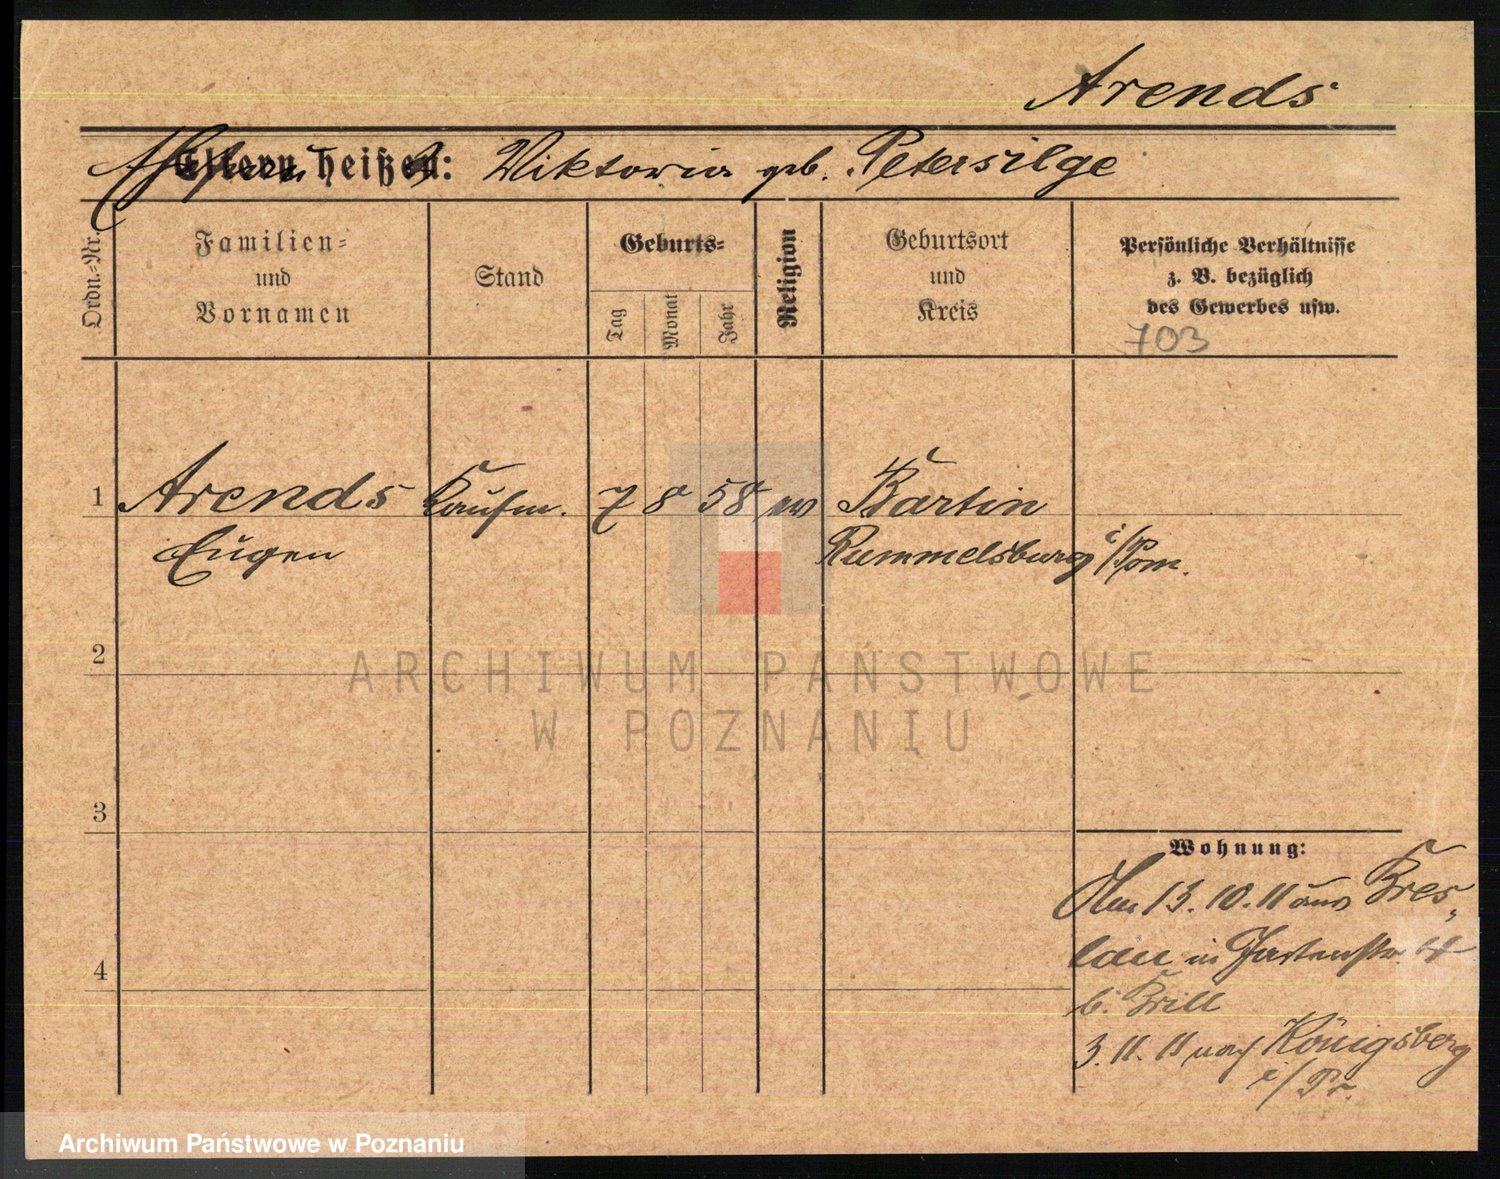 Arends
Eltern heißen: Viktoria geb. Petersilge
Ordn.-Nr.
Familien-
und
Vornamen
Stand
Geburts-
Tag
Monat
Jahr
Religion
Geburtsort
und
Kreis
Persönliche Verhältnisse
z. B. bezüglich
des Gewerbes usw.
703
1 Arends Kaufm. 7 8 58 ev Bartin
Eugen Rummelsburg i/Pom.
2
3
4
Wohnung:
13.10.11 aus Bres-
lau in Gartenstr. 
b. Brill
3.11.11 nach Königsberg
i/Pr.
ARCHIWUM PAŃSTWOWE
W POZNANIU
Archiwum Państwowe w Poznaniu